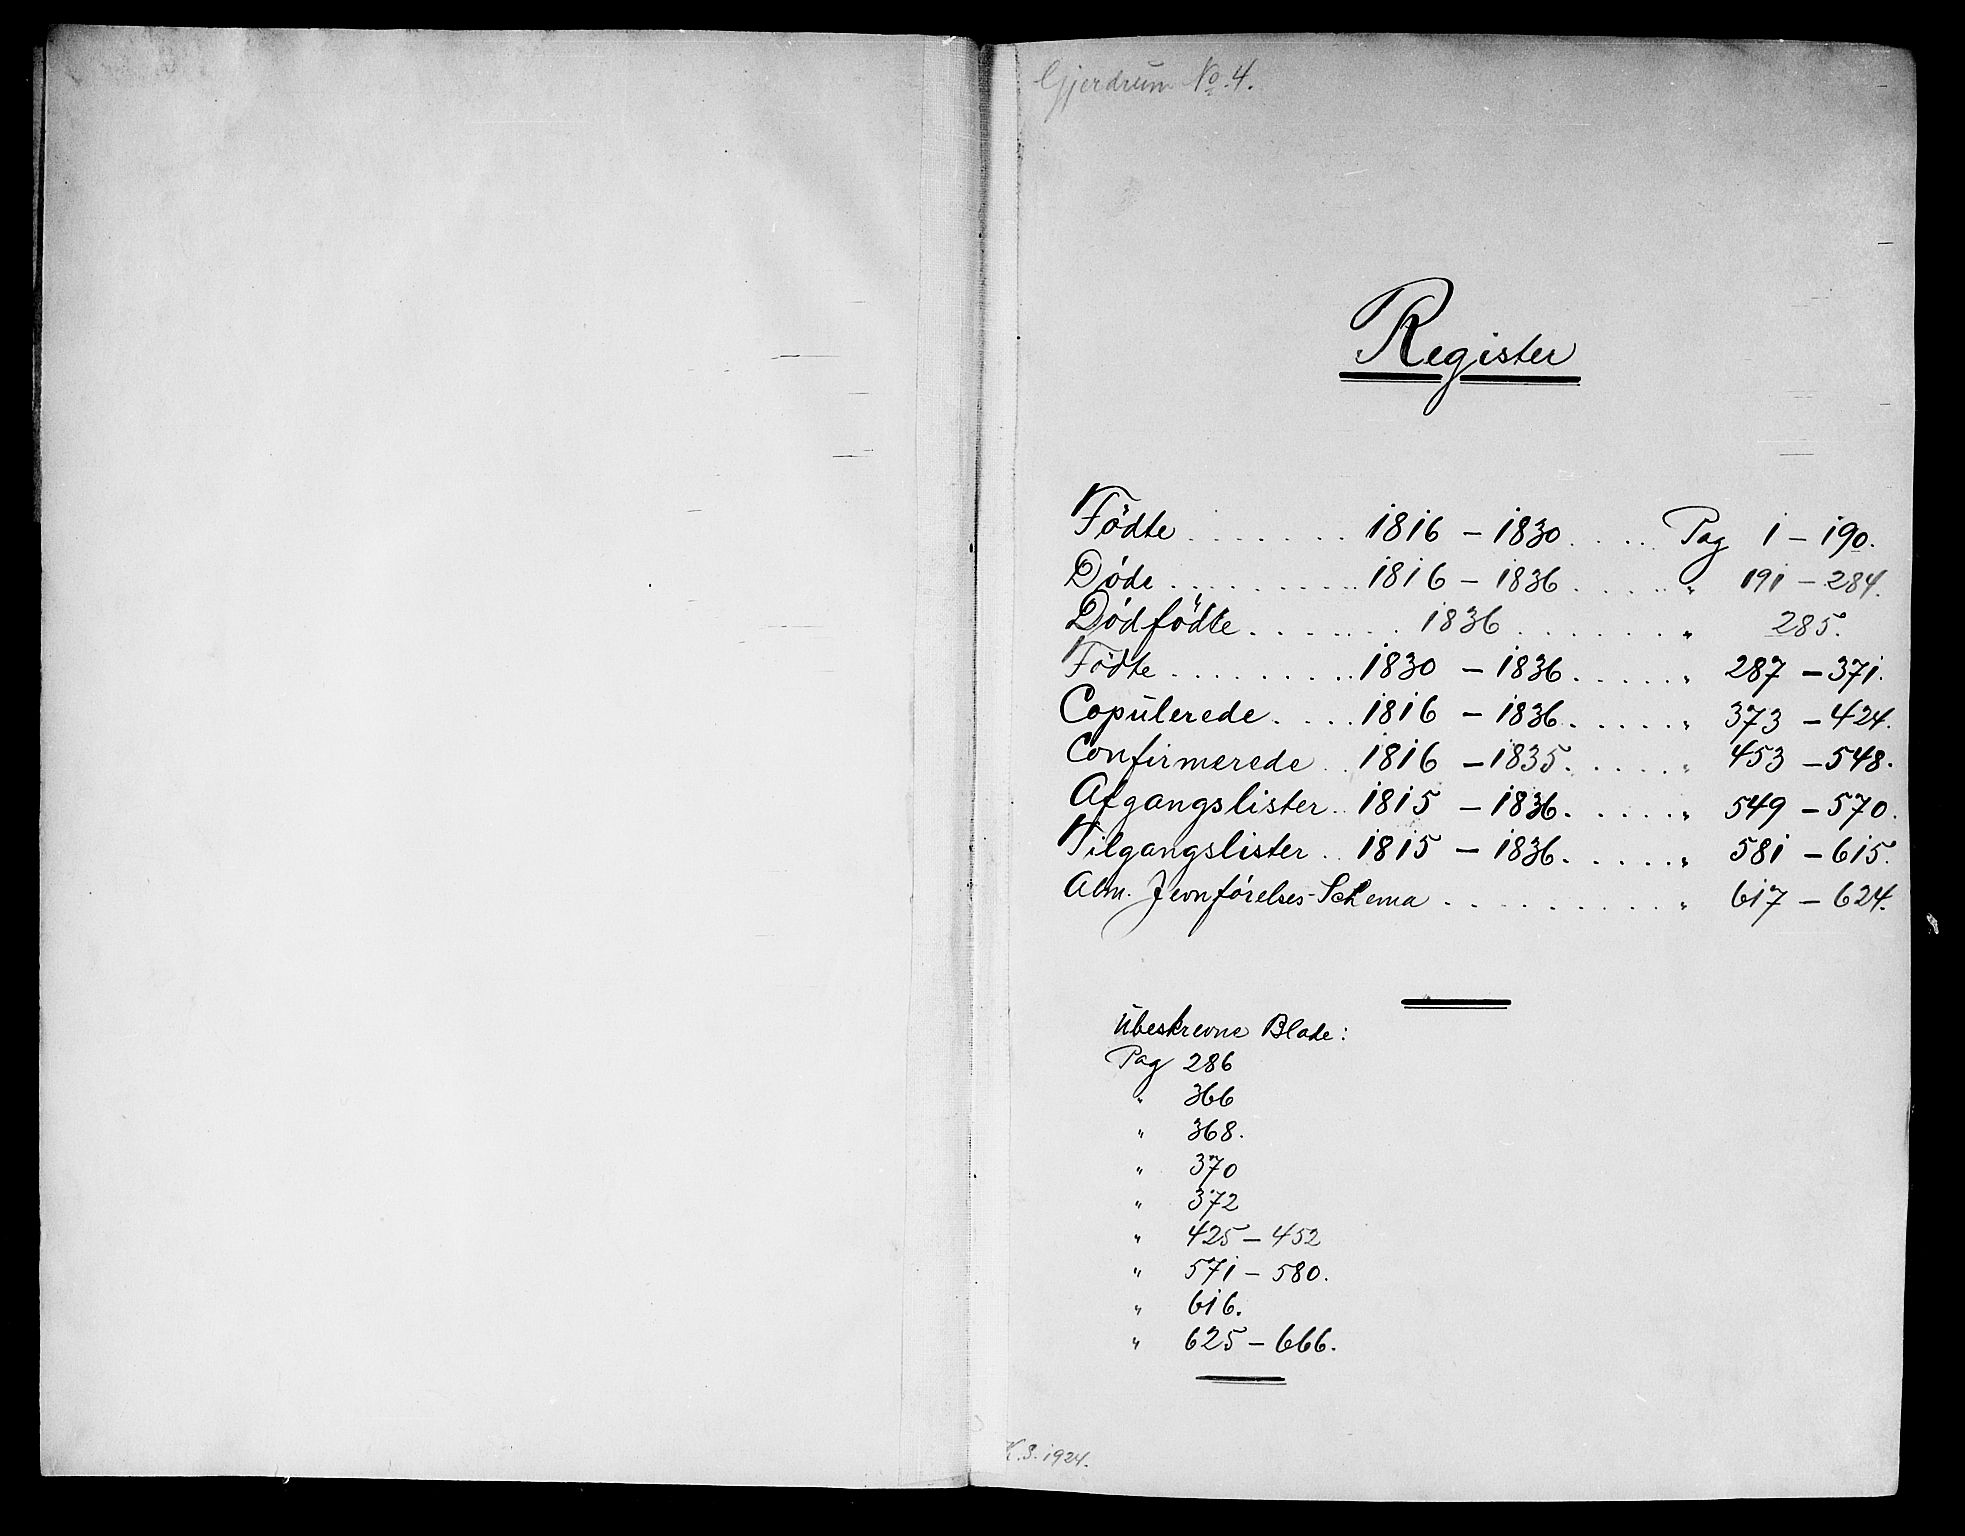 Gjerdrum No. 4.
Register
Födte . . . . . . . 1816 – 1830 . . . . . Pag 1 – 190.
Døde . . . . . . . . . . 1816 – 1836 . . . . . " 191 – 284.
Dödfödte . . . . . . . 1836 . . . . . . . " 285.
Födte . . . . . . . . . . 1830 – 1836 . . . . . " 287 – 371.
Copulerede . . . . 1816 – 1836 . . . . . " 373 – 424.
Confirmerede . . 1816 – 1835 . . . . . " 453 – 548.
Afgangslister . . 1815 – 1836 . . . . . " 549 – 570.
Tilgangslister . . 1815 – 1836 . . . . . " 581 – 615.
Alm. Jevnförelses-Schema . . . . . . . . . . " 617 – 624.
Ubeskrevne Blade:
Pag 286
" 366
" 368.
" 370
" 372
" 425 – 452
" 571 – 580.
" 616.
" 625 – 666.
K.S. 1924.